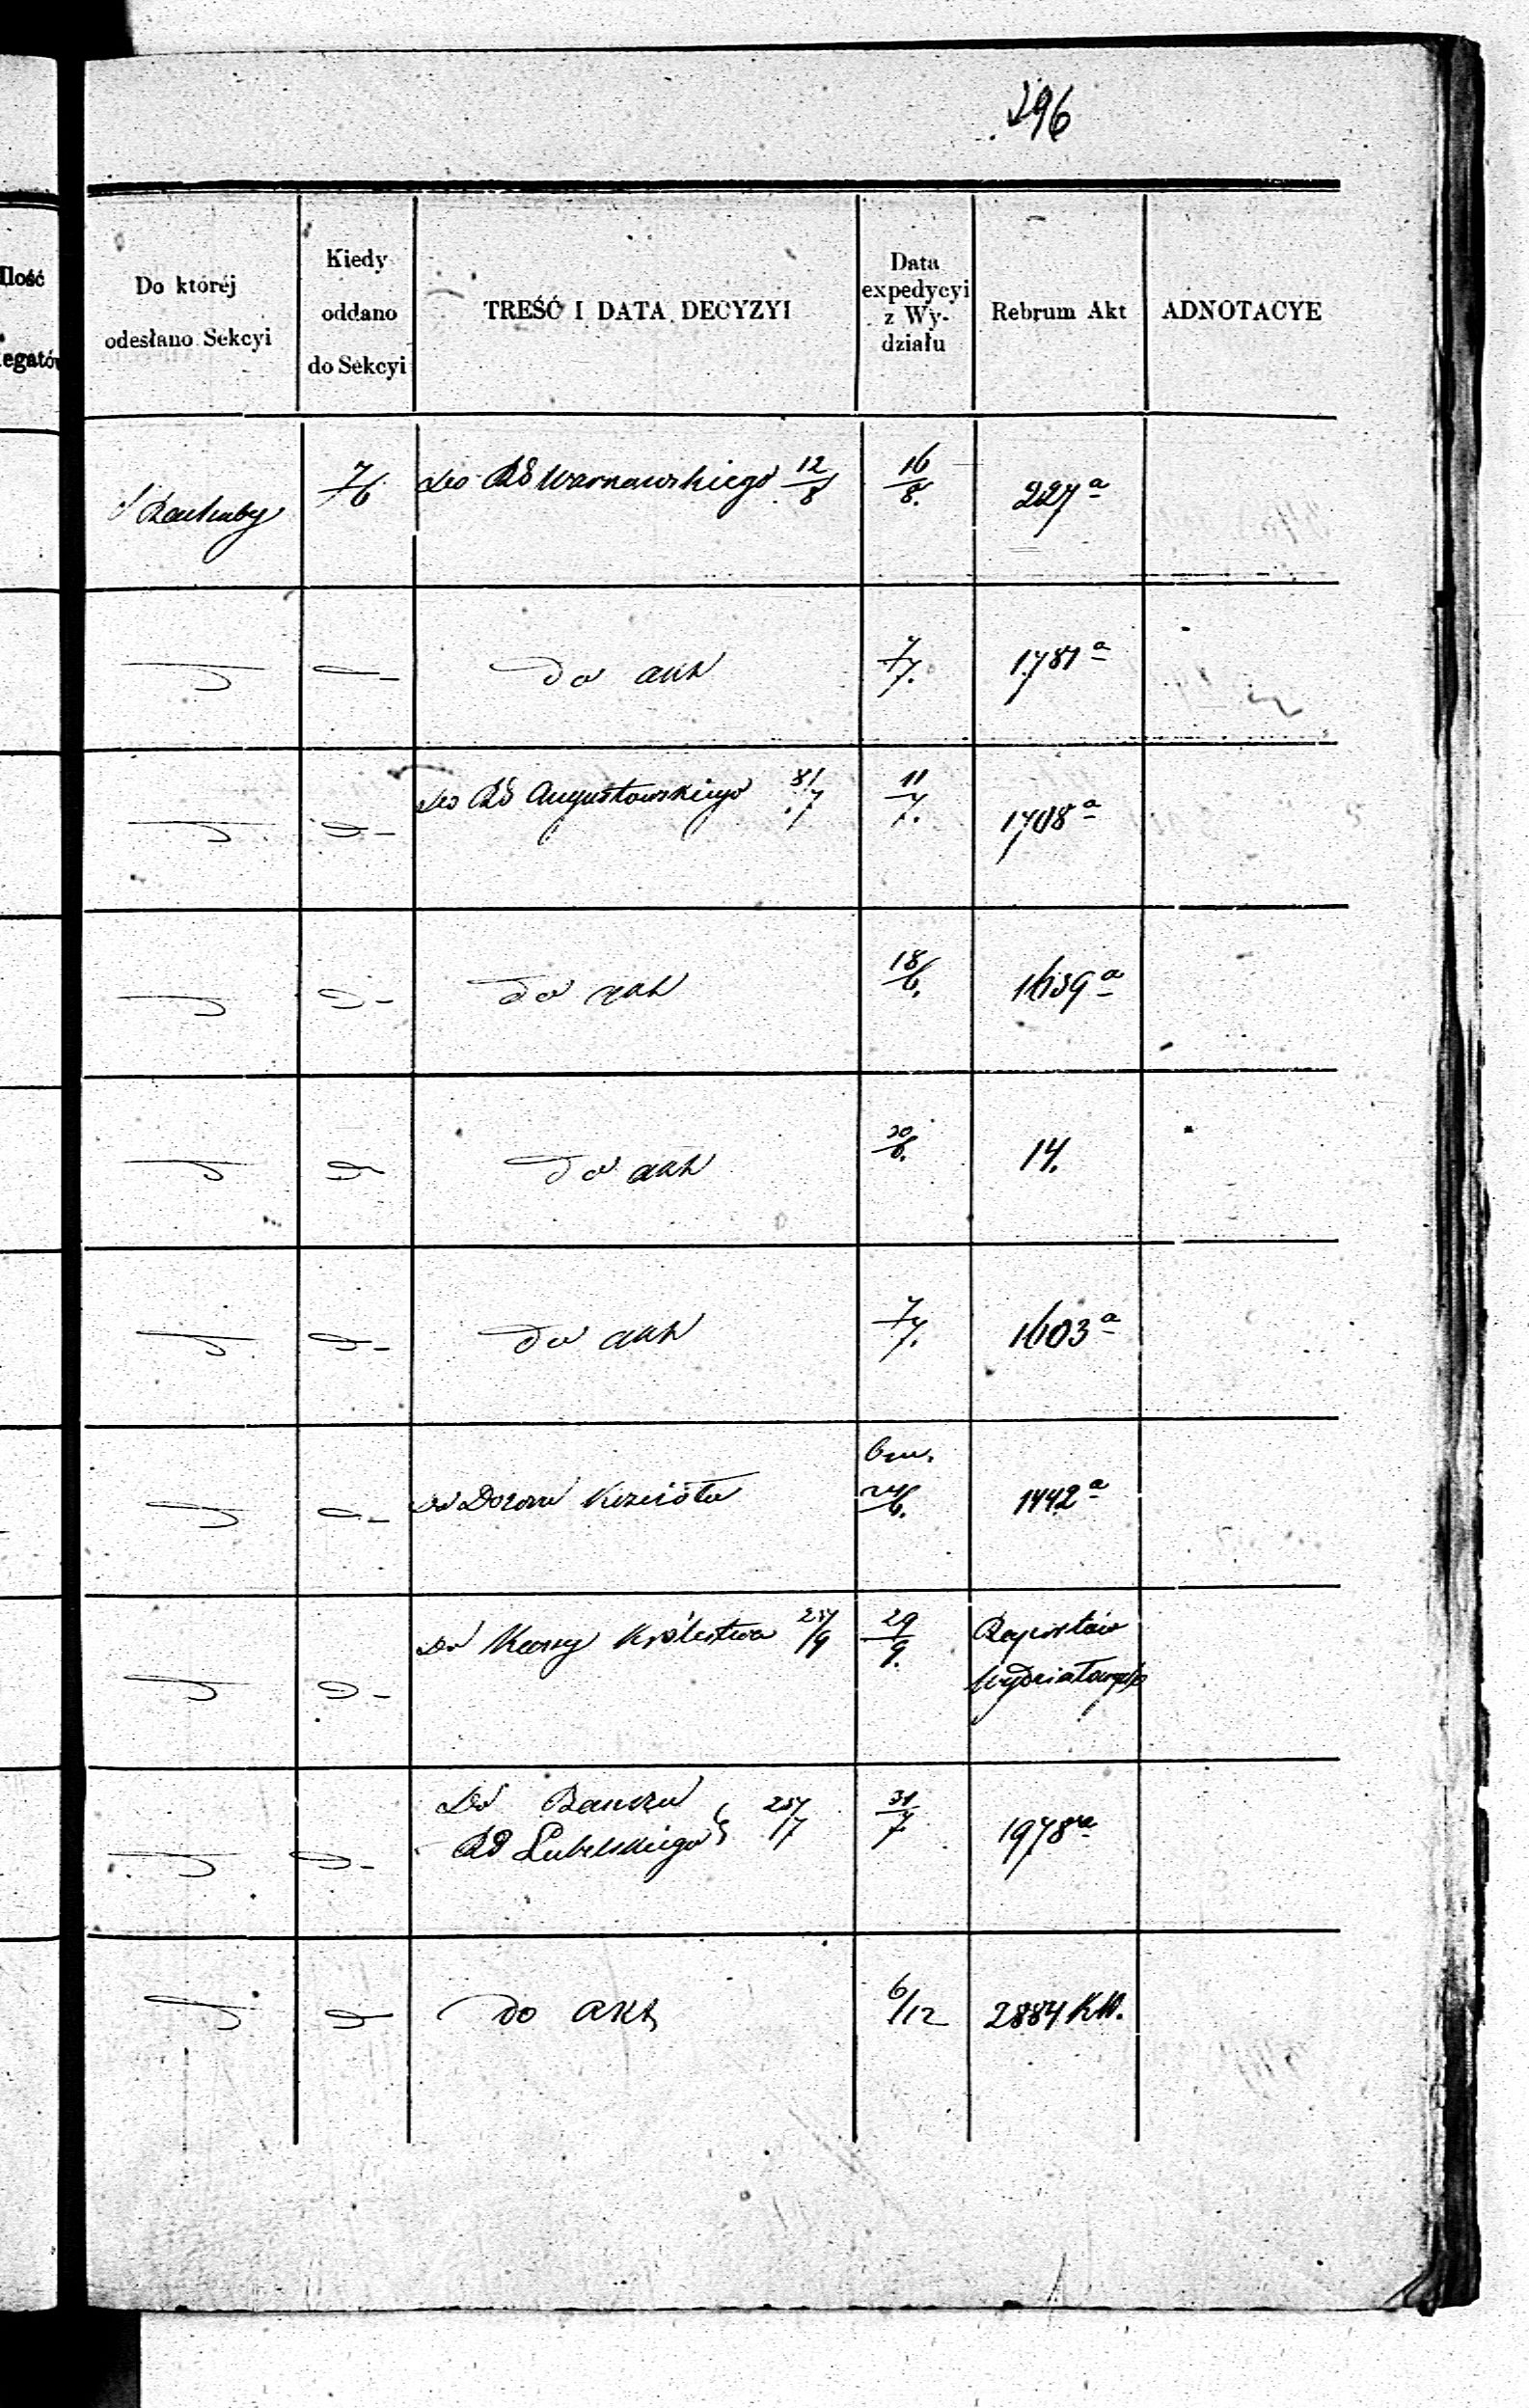 296
Ilość
egatów
Do któréj
odesłano Sekcyi
Kiedy
oddano
do Sekcyi
TREŚĆ I DATA DECYZYI
Data
expedycyi
z Wy-
działu
Rebrum Akt
ADNOTACYE
Rachuby 7/6 Do RG Warszawskiego 12/8 16/8. 227a
do akt 7/7. 1781a
Do RG Augustowskiego 8/7 11/7. 1708a
do akt 18/6. 1639a
do akt 20/6. 14.
do akt 7/7. 1603a
Do Dozoru Kościoła 24/6. 1442a
Do Kassy Królestwa 29/9. Raportów
Wydziałowych
Do Banku
RG Lubelskiego 31/7 1978a
Do akt 6/12 2884 KW.